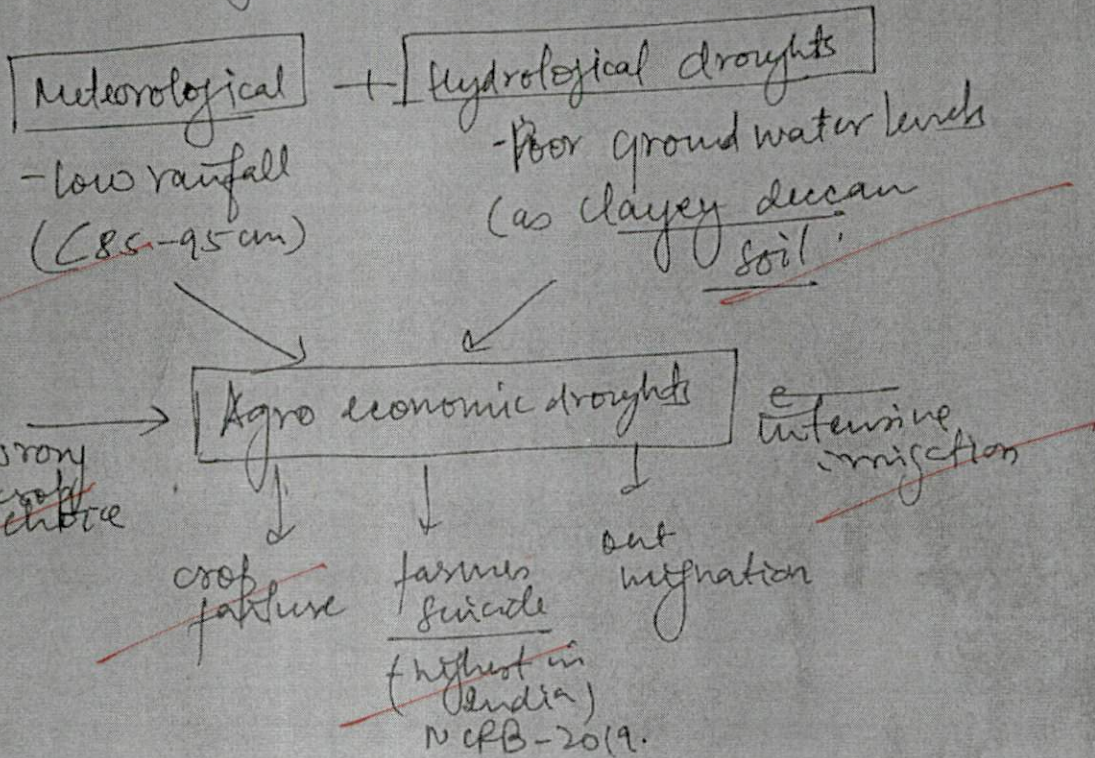 Meteorological + Hydrological droughts
- low rainfall
(<85-95 cm)
- Poor ground water levels
(as clayey deccan
soil.
Agro economic droughts
wrong
crop
choice
intensive
irrigation
crop
failure
farmers
suicide
(highest in
India)
NCRB-2019.
out
migration